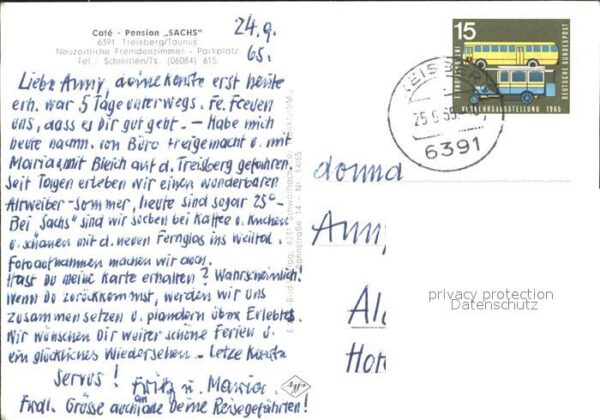 Café - Pension „SACHS"
6391 Treisberg/Taunus
Neuzeitliche Fremdenzimmer - Parkplatz
Tel.: Schmitten/Ts. (06084) 615
24.9.
65.
Liebe Anny, deine Karte erst heute
erh. war 5 Tage unterwegs. Fr. freuen
uns, dass es Dir gut geht. – Habe mich
heute nachm. von Büro freigemacht u. mit
Maria mit Bleich auf d. Treisberg gefahren.
Seit Tagen erleben wir einen wunderbaren
Altweiber-Sommer, heute sind sogar 25° –
Bei „Sachs" sind wir soeben bei Kaffee u. Kuchen
u. schauen mit d. neuen Fernglas ins Weiltal.
Fotoaufnahmen machen wir auch.
Hast Du meine Karte erhalten? Wahrscheinlich!
Wenn Du zurückkommst, werden wir uns
zusammen setzen u. plaudern übers Erlebte.
Wir wünschen Dir weiter schöne Ferien u.
ein glückliches Wiedersehen – Letze Karte
Servus! Fritz u. Maria.
Frdl. Grüsse auch an Deine Reisegefährten!
15
DEUTSCHE BUNDESPOST
VERKEHRSAUSSTELLUNG 1965
TREISBERG
25.9.65
6391
donna
Anny
Al
Hot
privacy protection
Datenschutz